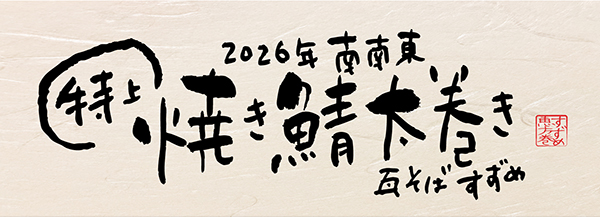 2026年 南南東
特上 焼き鯖太巻き
瓦そば すずめ
すずめ
恵方巻